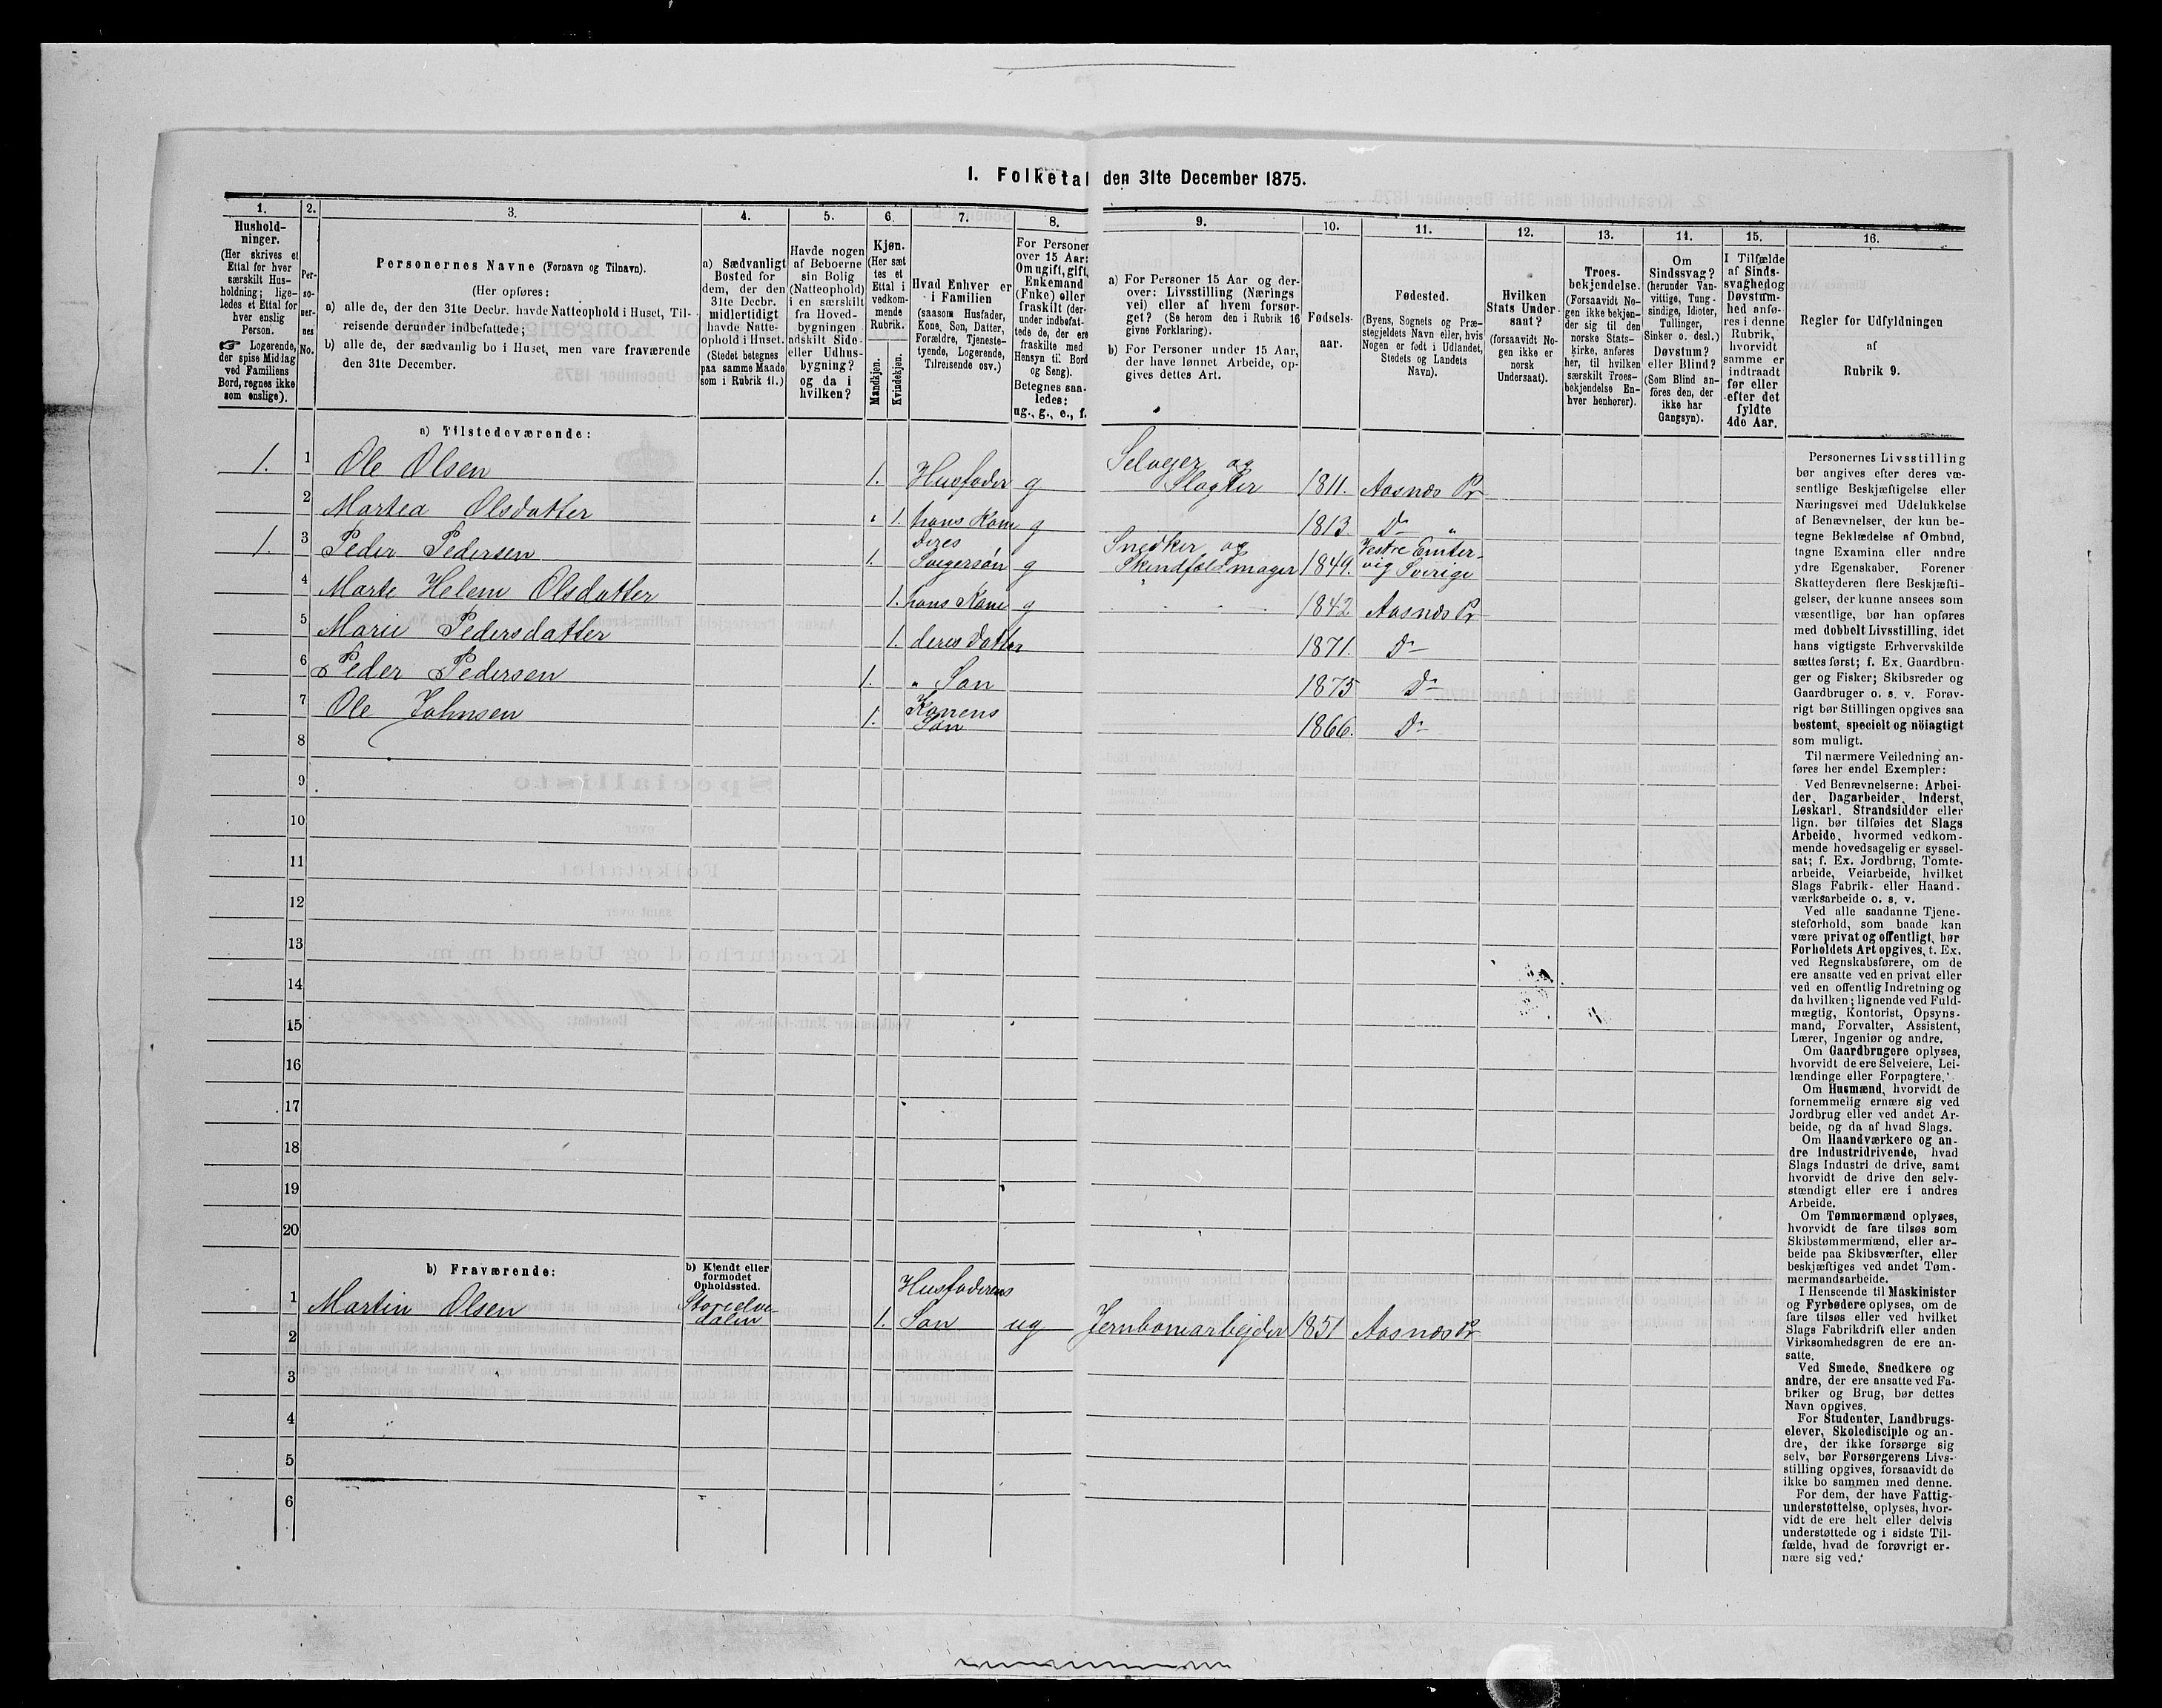 1. Folketal den 31te December 1875.
1.
Hushold-
ninger.
(Her skrives et
Ettal for hver
særskilt Hus-
holdning; lige-
ledes et Ettal for
hver enslig
Person.
☞ Logerende,
der spise Middag
ved Familiens
Bord, regnes ikke
som enslige).
2.
Per-
so-
ner-
nes
No.
3.
Personernes Navne (Fornavn og Tilnavn).
(Her opføres:
a) alle de, der den 31te Decbr. havde Natteophold i Huset, Til-
reisende derunder indbefattede;
b) alle de, der sædvanlig bo i Huset, men vare fraværende
den 31te December.
4.
a) Sædvanligt
Bosted for
dem, der den
31te Decbr.
midlertidigt
havde Natte-
ophold i Huset.
(Stedet betegnes
paa samme Maade
som i Rubrik 11.)
5.
Havde nogen
af Beboerne
sin Bolig
(Natteophold)
i en særskilt
fra Hoved-
bygningen
adskilt Side-
eller Udhus-
bygning?
og da i
hvilken?
6.
Kjøn.
(Her sæt
tes et
Ettal i
vedkom-
mende
Rubrik.
Mandkjøn.
Kvindekjøn.
7.
Hvad Enhver er
i Familien
(saasom Husfader,
Kone, Søn, Datter,
Forældre, Tjeneste-
tyende, Logerende,
Tilreisende osv.)
8.
For Personer
over 15 Aar:
Om ugift, gift,
Enkemand
(Enke) eller
fraskilt (der-
under indbefat-
tede de, der ere
fraskilte med
Hensyn til Bord
og Seng).
Betegnes saa-
ledes:
ug., g., e., f.
9.
a) For Personer 15 Aar og der-
over: Livsstilling (Nærings
vei) eller af hvem forsør-
get? (Se herom den i Rubrik 16
givne Forklaring).
b) For Personer under 15 Aar,
der have lønnet Arbeide, op-
gives dettes Art.
10.
Fødsels-
aar.
11.
Fødested.
(Byens, Sognets og Præ-
stegjeldets Navn eller, hvis
Nogen er født i Udlandet,
Stedets og Landets
Navn).
12.
Hvilken
Stats Under
saat?
(forsaavidt No-
gen ikke er
norsk
Undersaat).
13.
Troes-
bekjendelse.
(Forsaavidt No-
gen ikke bekjen-
der sig til den
norske Stats-
kirke, anføres
her, til hvilken
særskilt Troes-
bekjendelse En-
hver henhører).
14.
Om
Sindssvag?
(herunder Van-
vittige, Tung-
sindige, Idioter,
Tullinger,
Sinker o. desl.)
Døvstum?
eller Blind?
(Som Blind an-
føres den, der
ikke har
Gangsyn).
15.
I Tilfælde
af Sinds-
svaghed og
Døvstum-
hed anfø-
res i denne
Rubrik,
hvorvidt
samme er
indtraadt
før eller
efter det
fyldte
4de Aar.
16.
Regler for Udfyldningen
af
Rubrik 9.
a) Tilstedeværende:
1. 1 Ole Olsen 1. Husfader g Selveier og Slagter 1811. Aasnæs Pr
2 Martea Olsdatter 1. hans Kone g 1813. Do "
1. 3 Peder Pedersen 1. deres Svigersøn g Snedker og Skindfeldmager 1849. Vestre Emtervig Sverige
4 Marte Helene Olsdatter 1. hans Kone g 1842 Aasnæs Pr
5 Marie Pedersdatter 1. deres Datter 1871. Do
6 Peder Pedersen 1. " Søn 1875 Do
7 Ole Johnsen 1. Konens Søn 1866. Do
8
9
10
11
12
13
14
15
16
17
18
19
20
b) Fraværende:
b) Kjendt eller
formodet
Opholdssted.
1 Martin Olsen Storelvedalen 1. Husfaderens Søn ug Jernbanearbeider 1851 Aasnæs Pr
2
3
4
5
6
Personernes Livsstilling
bør angives efter deres væ-
sentlige Beskjæftigelse eller
Næringsvei med Udelukkelse
af Benævnelser, der kun be-
tegne Beklædelse af Ombud,
tagne Examina eller andre
ydre Egenskaber. Forener
Skatteyderen flere Beskjæfti-
gelser, der kunne ansees som
væsentlige, bør han opføres
med dobbelt Livsstilling, idet
hans vigtigste Erhvervskilde
sættes først; f. Ex. Gaardbru-
ger og Fisker; Skibsreder og
Gaardbruger o. s. v. Forøv-
rigt bør Stillingen opgives saa
bestemt, specielt og nöiagtigt
som muligt.
Til nærmere Veiledning an-
føres her endel Exempler:
Ved Benævnelserne: Arbei-
der, Dagarbeider, Inderst,
Løskarl, Strandsidder eller
lign. bør tilføies det Slags
Arbeide, hvormed vedkom-
mende hovedsagelig er syssel-
sat; f. Ex. Jordbrug, Tomte-
arbeide, Veiarbeide, hvilket
Slags Fabrik- eller Haand-
værksarbeide o. s. v.
Ved alle saadanne Tjene-
steforhold, som baade kan
være privat og offentligt, bør
Forholdets Art opgives, t. Ex.
ved Regnskabsførere, om de
ere ansatte ved en privat eller
ved en offentlig Indretning og
da hvilken; lignende ved Fuld-
mægtig, Kontorist, Opsyns-
mand, Forvalter, Assistent,
Lærer, Ingeniør og andre.
Om Gaardbrugere oplyses,
hvorvidt de ere Selveiere, Lei-
lændinge eller Forpagtere.
Om Husmænd, hvorvidt de
fornemmelig ernære sig ved
Jordbrug eller ved andet Ar-
beide, og da af hvad Slags.
Om Haandværkere og an-
dre Industridrivende, hvad
Slags Industri de drive, samt
hvorvidt de drive den selv-
stændigt eller ere i andres
Arbeide.
Om Tømmermænd oplyses,
hvorvidt de fare tilsøs som
Skibstømmermænd, eller ar-
beide paa Skibsværfter, eller
beskjæftiges ved andet Tøm-
mermandsarbeide.
I Henseende til Maskinister
og Fyrbødere oplyses, om de
fare tilsøs eller ved hvilket
Slags Fabrikdrift eller anden
Virksomhedsgren de ere an-
satte.
Ved Smede, Snedkere og
andre, der ere ansatte ved Fa-
briker og Brug, bør dettes
Navn opgives.
For Studenter, Landbrugs-
elever, Skoledisciple og an-
dre, der ikke forsørge sig
selv, bør Forsørgerens Livs-
stilling opgives, forsaavidt de
ikke bo sammen med denne.
For dem, der have Fattig-
understøttelse, oplyses, hvor-
vidt de ere helt eller delvis
understøttede og i sidste Til-
fælde, hvad de forøvrigt er-
nære sig ved.